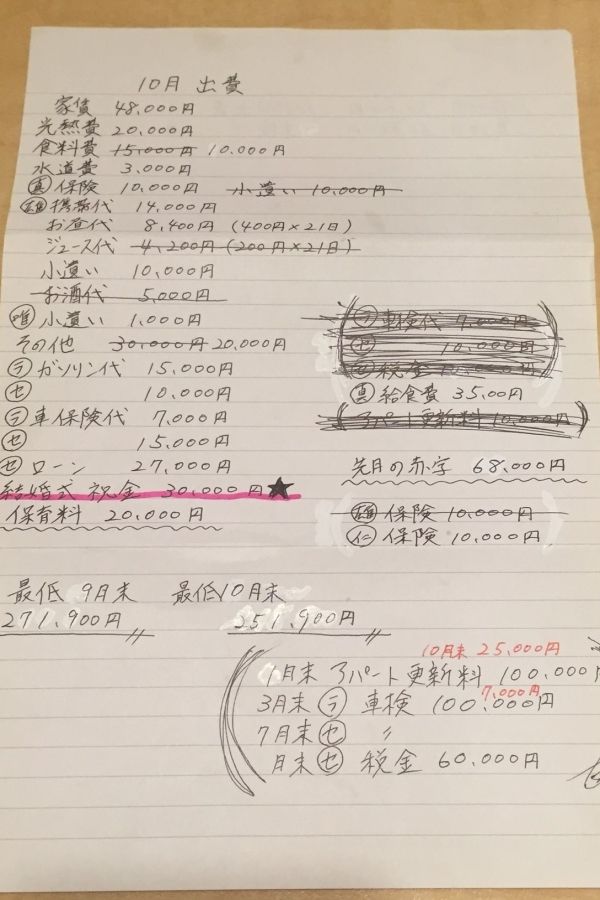 10月 出費
家賃 48,000円
光熱費 20,000円
食料費 15,000円 10,000円
水道費 3,000円
真 保険 10,000円 小遣い 10,000円
雄 携帯代 14,000円
お昼代 8,400円 (400円×21日)
ジュース代 4,200円 (200円×21日)
小遣い 10,000円
お酒代 5,000円
唯 小遣い 1,000円
その他 30,000円 20,000円
ラ ガソリン代 15,000円
セ 10,000円
ラ 車保険代 7,000円
セ 15,000円
セ ローン 27,000円
結婚式 祝金 30,000円★
保育料 20,000円
ラ 車検代 7,000円
セ 10,000円
セ 税金 10,000円
真 給食費 3500円
アパート更新料 10,000円
先月の赤字 68,000円
雄 保険 10,000円
仁 保険 10,000円
最低 9月末 最低10月末
271,900円 251,900円
10月末 25,000円
1月末 アパート更新料 100,000円
7,000円
3月末 ラ 車検 100,000円
7月末 セ 〃
月末 セ 税金 60,000円